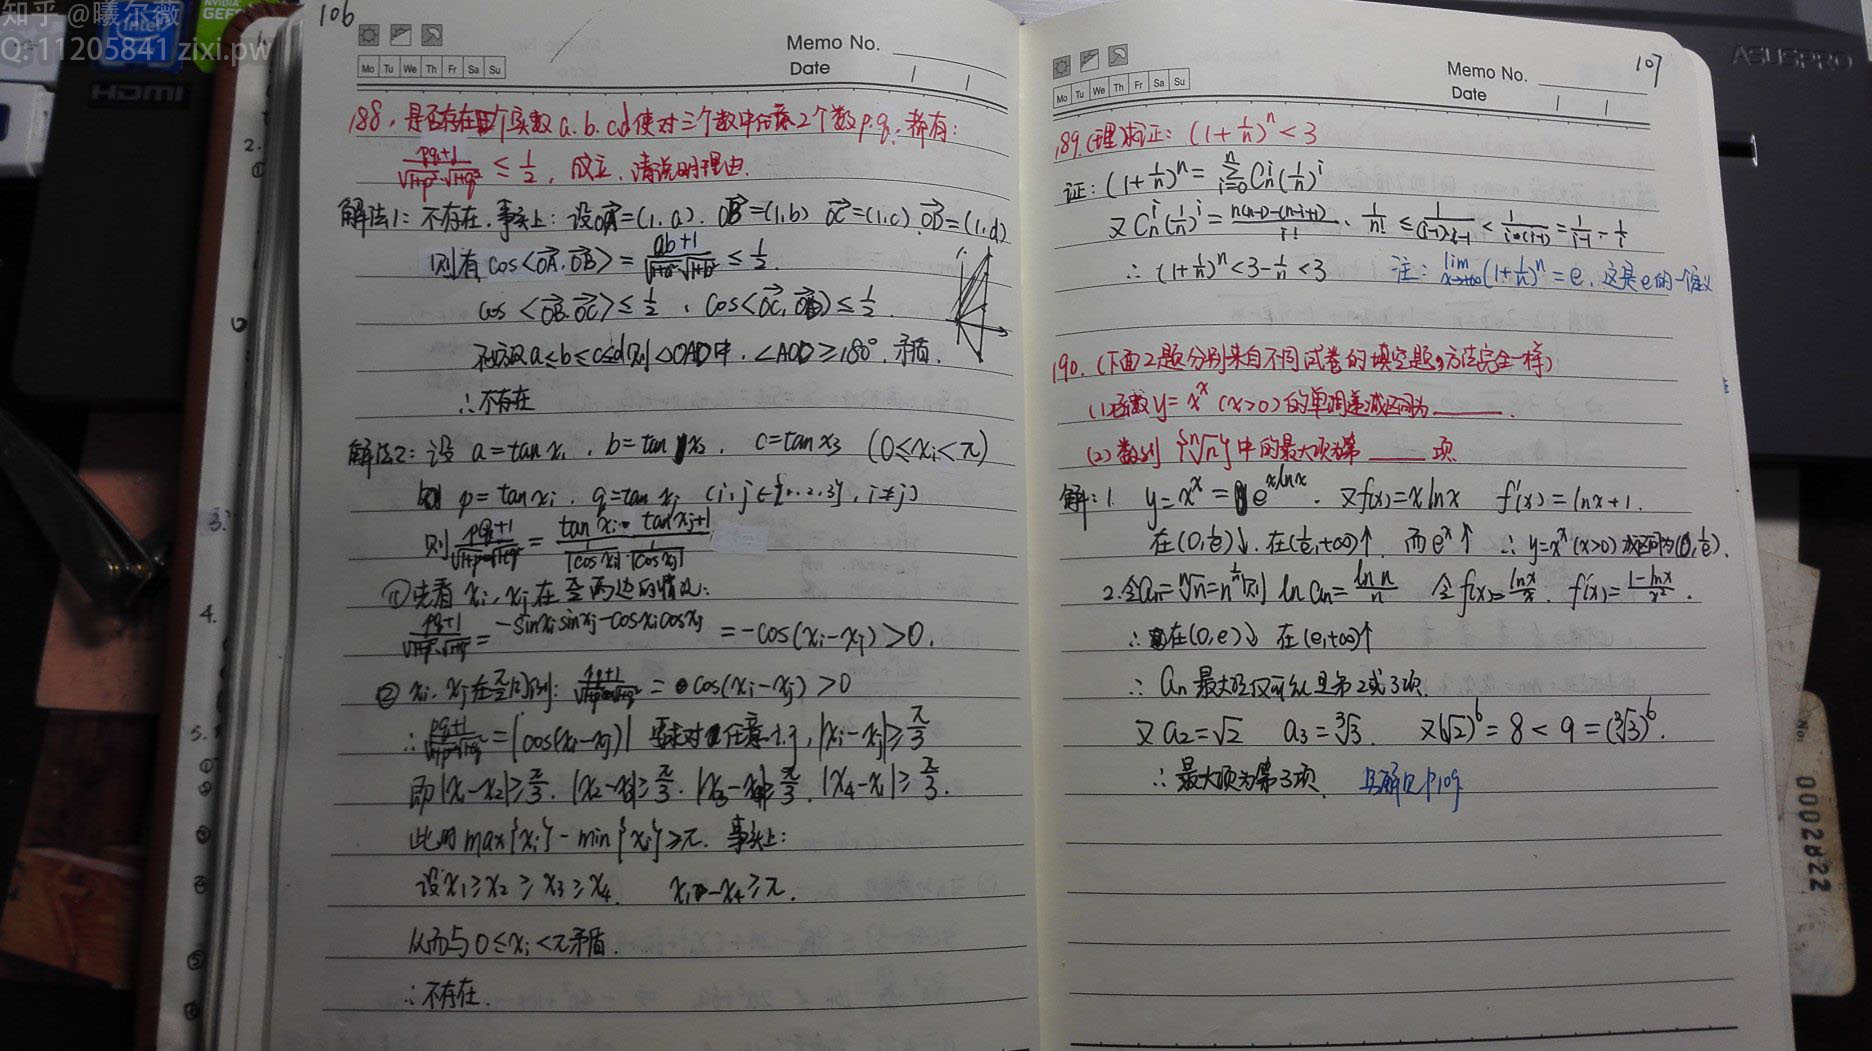 知乎 @曦尔薇
Q:11205841 zixi.pw
intel
NVIDIA
HDMI
ASUSPRO
106
Memo No.
Mo Tu We Th Fr Sa Su
Date
188. 是否存在四个实数 a.b.cd 使对三个数中任意2个数 p.q. 称有:
pq+1/√1+p²·√1+q² ≤ 1/2, 成立, 请说明理由.
解法1: 不存在. 事实上: 设OA→=(1,a). OB→=(1,b) OC→=(1,c). OD→=(1,d)
则有 cos<OA→.OB→> = ab+1/√1+a²·√1+b² ≤ 1/2.
cos <OB→.OC→> ≤ 1/2 , cos<OC→, OD→> ≤ 1/2.
不妨设 a≤b≤c≤d 则 △OAD中. ∠AOD ≥180°, 矛盾.
∴不存在
解法2: 设 a=tan x₁ , b=tan x₂ , c=tan x₃ (0≤xᵢ<π)
p=tan xᵢ , q=tan xⱼ (i,j∈{1.2.3}, i≠j)
则 pq+1/√1+p²√1+q² = tan xᵢ· tan xⱼ+1 / 1/|cos xᵢ|·1/|cos xⱼ|
①先看 xᵢ, xⱼ 在 π/2 两边的情况:
pq+1/√1+p²√1+q² = -sinxᵢ sinxⱼ-cosxᵢcosxⱼ = -cos(xᵢ-xⱼ) >0.
② xᵢ, xⱼ在π/2同侧: pq+1/√1+p²√1+q² = cos(xᵢ-xⱼ) >0
∴ pq+1/√1+p²√1+q² = |cos(xᵢ-xⱼ)| 要求对任意 i.j, |xᵢ-xⱼ|≥π/3
即 |x₁-x₂|≥π/3. |x₂-x₃|≥π/3. |x₃-x₄|≥π/3. |x₄-x₁|≥π/3.
此时 max{xᵢ} - min{xᵢ} ≥π. 事实上:
设 x₁≥x₂ ≥ x₃ ≥x₄. x₁-x₄≥π.
从而与 0≤xᵢ<π矛盾.
∴不存在.
107
Memo No.
Mo Tu We Th Fr Sa Su
Date
189.(理)求证: (1+1/n)ⁿ <3
证: (1+1/n)ⁿ = Σⁿᵢ₌₀ Cₙⁱ(1/n)ⁱ
又 Cₙⁱ(1/n)ⁱ = n(n-1)-(n-i+1)/i! · 1/n! ≤ 1/(i-1)·i-1 < 1/i·(i-1) = 1/i-1 - 1/i
∴ (1+1/n)ⁿ <3-1/n <3 注: lim x→+∞ (1+1/n)ⁿ = e. 这是e的一个定义
190. (下面2题分别来自不同试卷的填空题,方法完全一样)
(1)函数 y=xˣ (x>0) 的单调递减区间为______.
(2)数列 {ⁿ√n} 中的最大项为第_____项
解: 1. y=xˣ = e^xlnx. 又f(x)=xlnx f'(x)=lnx+1.
在(0,1/e)↓. 在(1/e,+∞)↑ 而 eˣ↑ ∴ y=xˣ (x>0) 减区间为(0,1/e).
2.令aₙ=ⁿ√n=n^1/n 则 ln aₙ= ln n/n 令 f(x)=lnx/x. f'(x)=1-lnx/x².
∴在(0,e)↓ 在(e,+∞)↑
∴ aₙ最大项仅可能是第2或3项.
又 a₂=√2 a₃=³√3. 又(√2)⁶=8<9=(³√3)⁶.
∴最大项为第3项. 另解见P109
No: 0002822